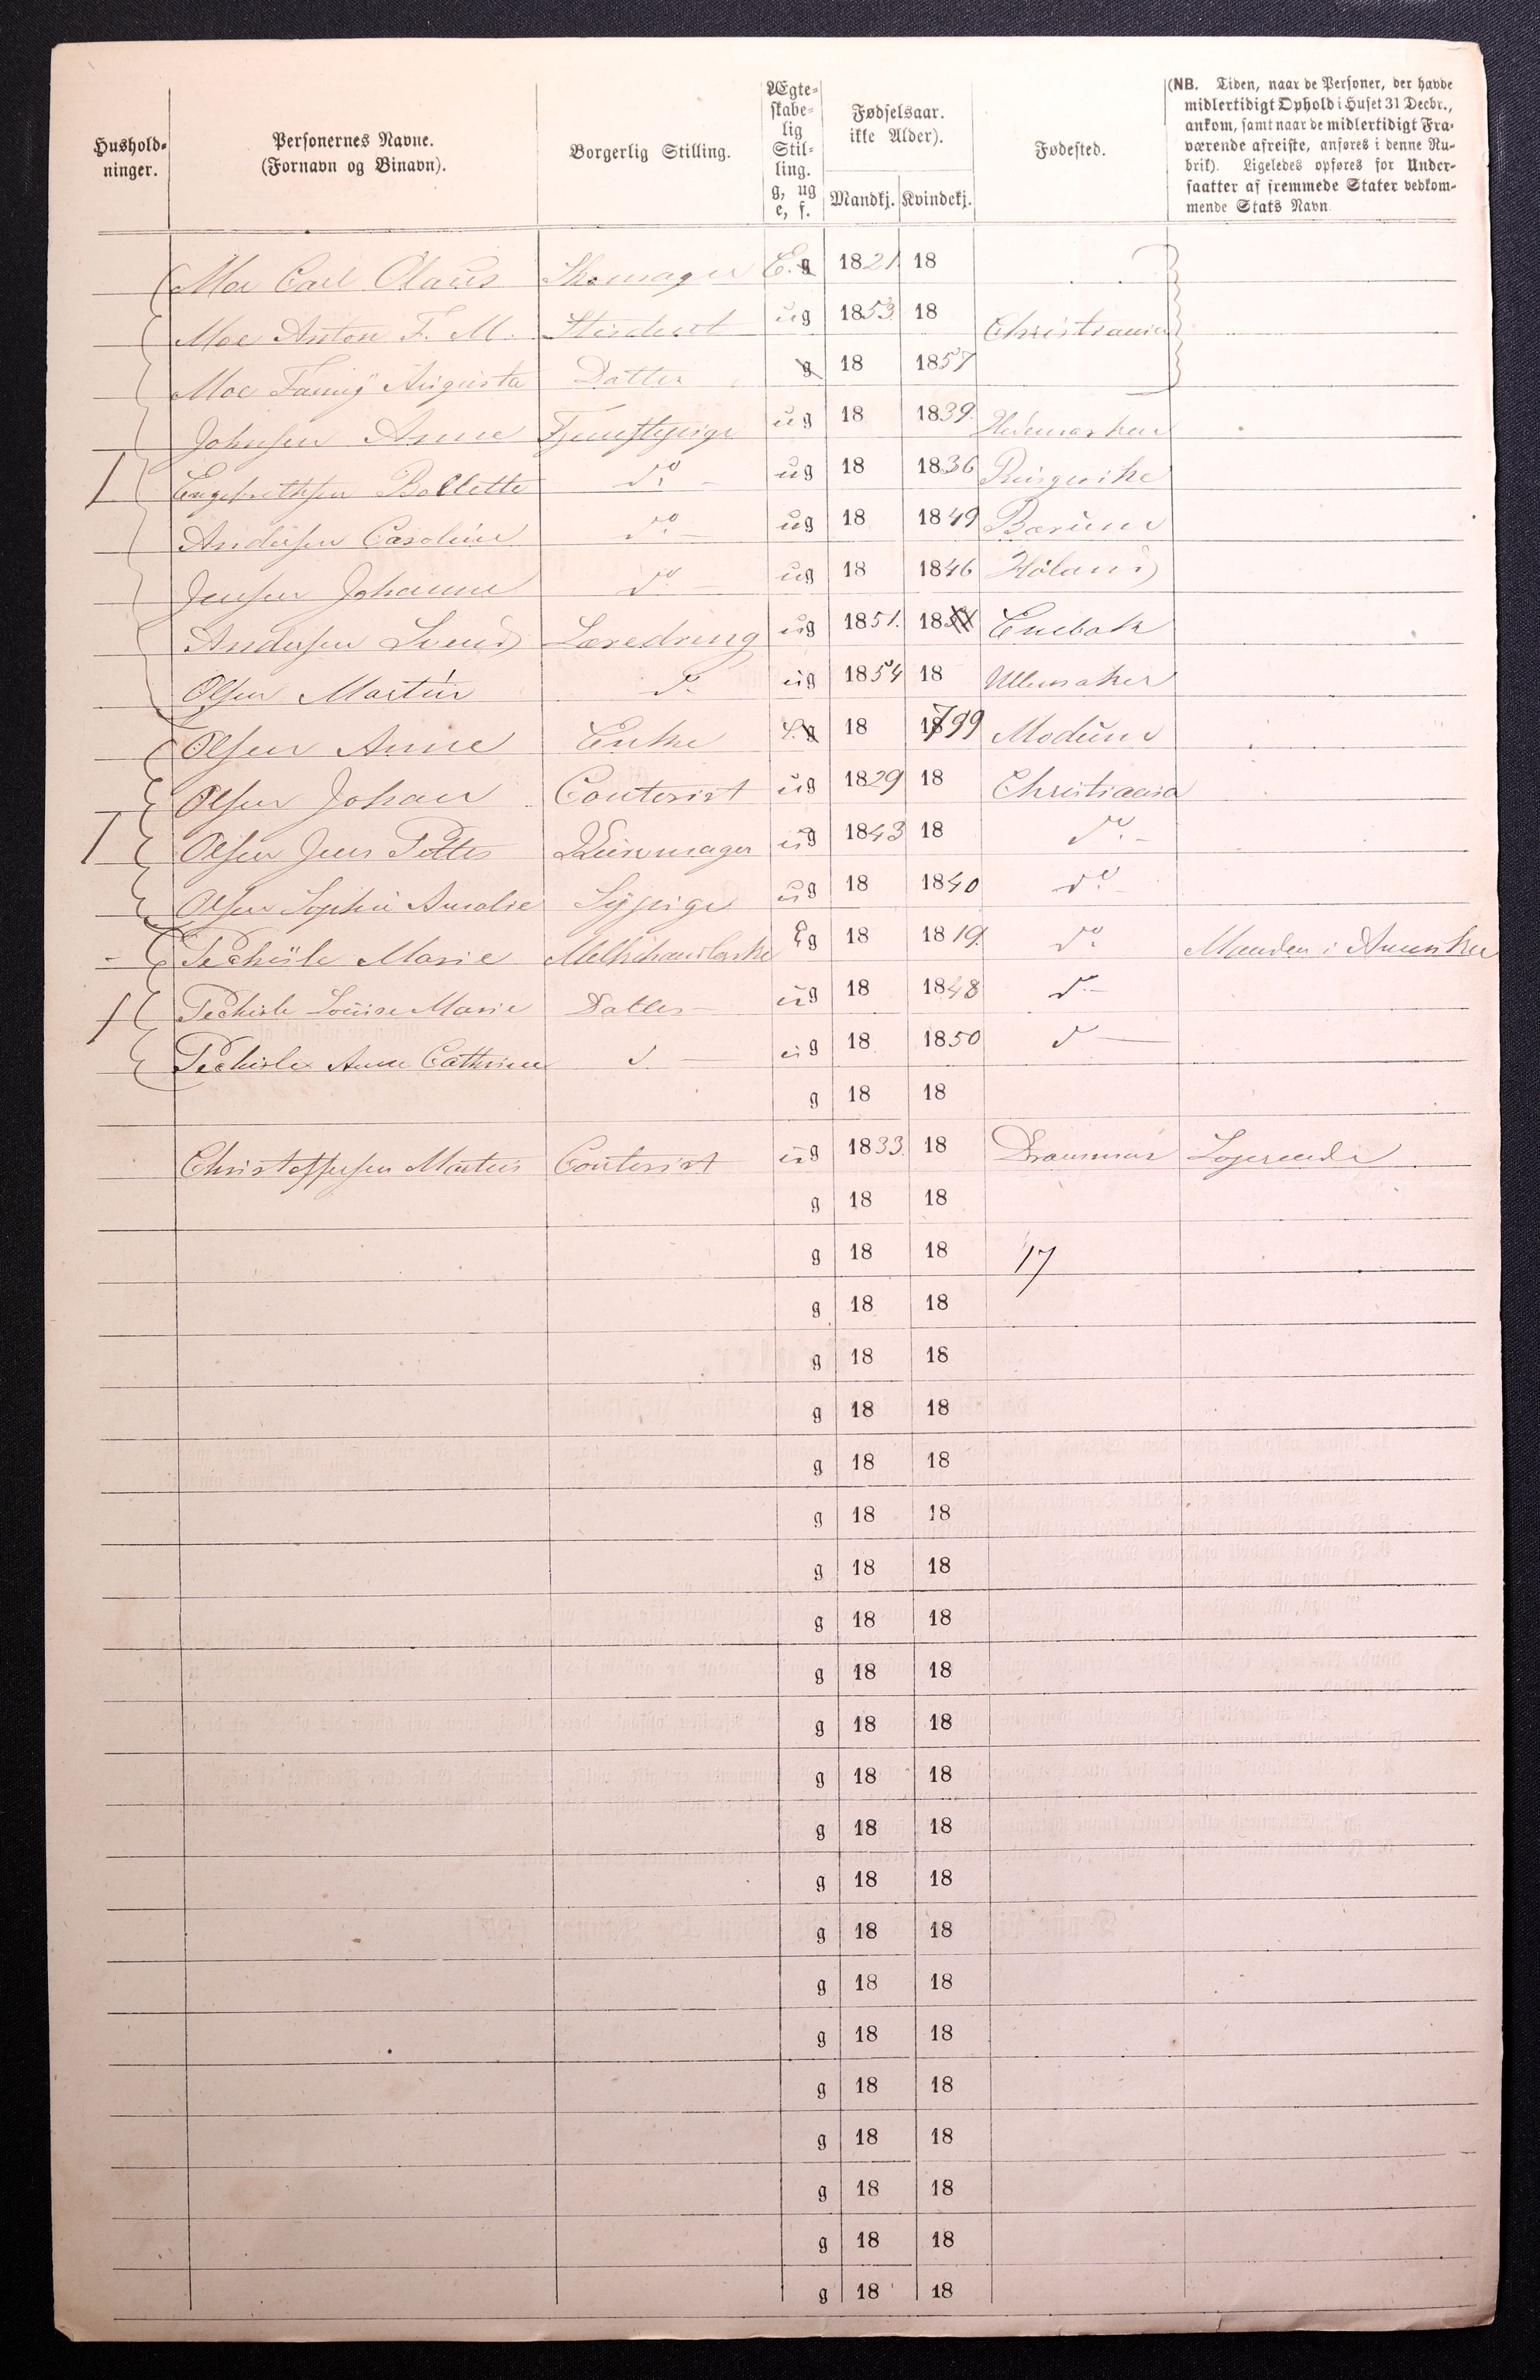 Hushold-
ninger.
Personernes Navne.
(Fornavn og Binavn).
Borgerlig Stilling.
Ægte-
skabe-
lig
Stil-
ling.
g, ug
e, f.
Fødselsaar.
ikke Alder).
Mandkj. Kvindekj.
Fødested.
(NB. Tiden, naar de Personer, der havde
midlertidigt Ophold i Huset 31 Decbr.,
ankom, samt naar de midlertidigt Fra-
værende afreiste, anføres i denne Ru-
brik). Ligeledes opføres for Under-
saatter af fremmede Stater vedkom-
mende Stats Navn.
Moe Carl Olaus Skomager E. g 1821 18
Moe Anton F. M. Student ug 1853 18 Christiania
Moe Fanny Augusta Datter g 18 1857
Johnsen Anne Tjenestepige ug 18 1839 Hedemarken
Engebrethsen Bollette do ug 18 1836 Ringerike
Andersen Caroline do ug 18 1849 Bærum
Jensen Johanne do ug 18 1846 Høland
Andersen Svend Læredreng ug 1851 18 Enebak
Olsen Martin d. ug 1854 18 Ullensaker
Olsen Anne Enke g 18 1799 Modum
Olsen Johan Contorist ug 1829 18 Christiania
Olsen Jens Petter ug 1843 18 do
Olsen Sophie Amalie Sypige ug 18 1840 do
Marie Melkhandlerske g 18 1819 do Manden i Amerika
Louise Marie Datter ug 18 1848 d.
Anne Cathrine d ug 18 1850 d
g 18 18
Christoffersen Martin Contorist ug 1833 18 Drammen Logerende
g 18 18
g 18 18 17
g 18 18
g 18 18
g 18 18
g 18 18
g 18 18
g 18 18
g 18 18
g 18 18
g 18 18
g 18 18
g 18 18
g 18 18
g 18 18
g 18 18
g 18 18
g 18 18
g 18 18
g 18 18
g 18 18
g 18 18